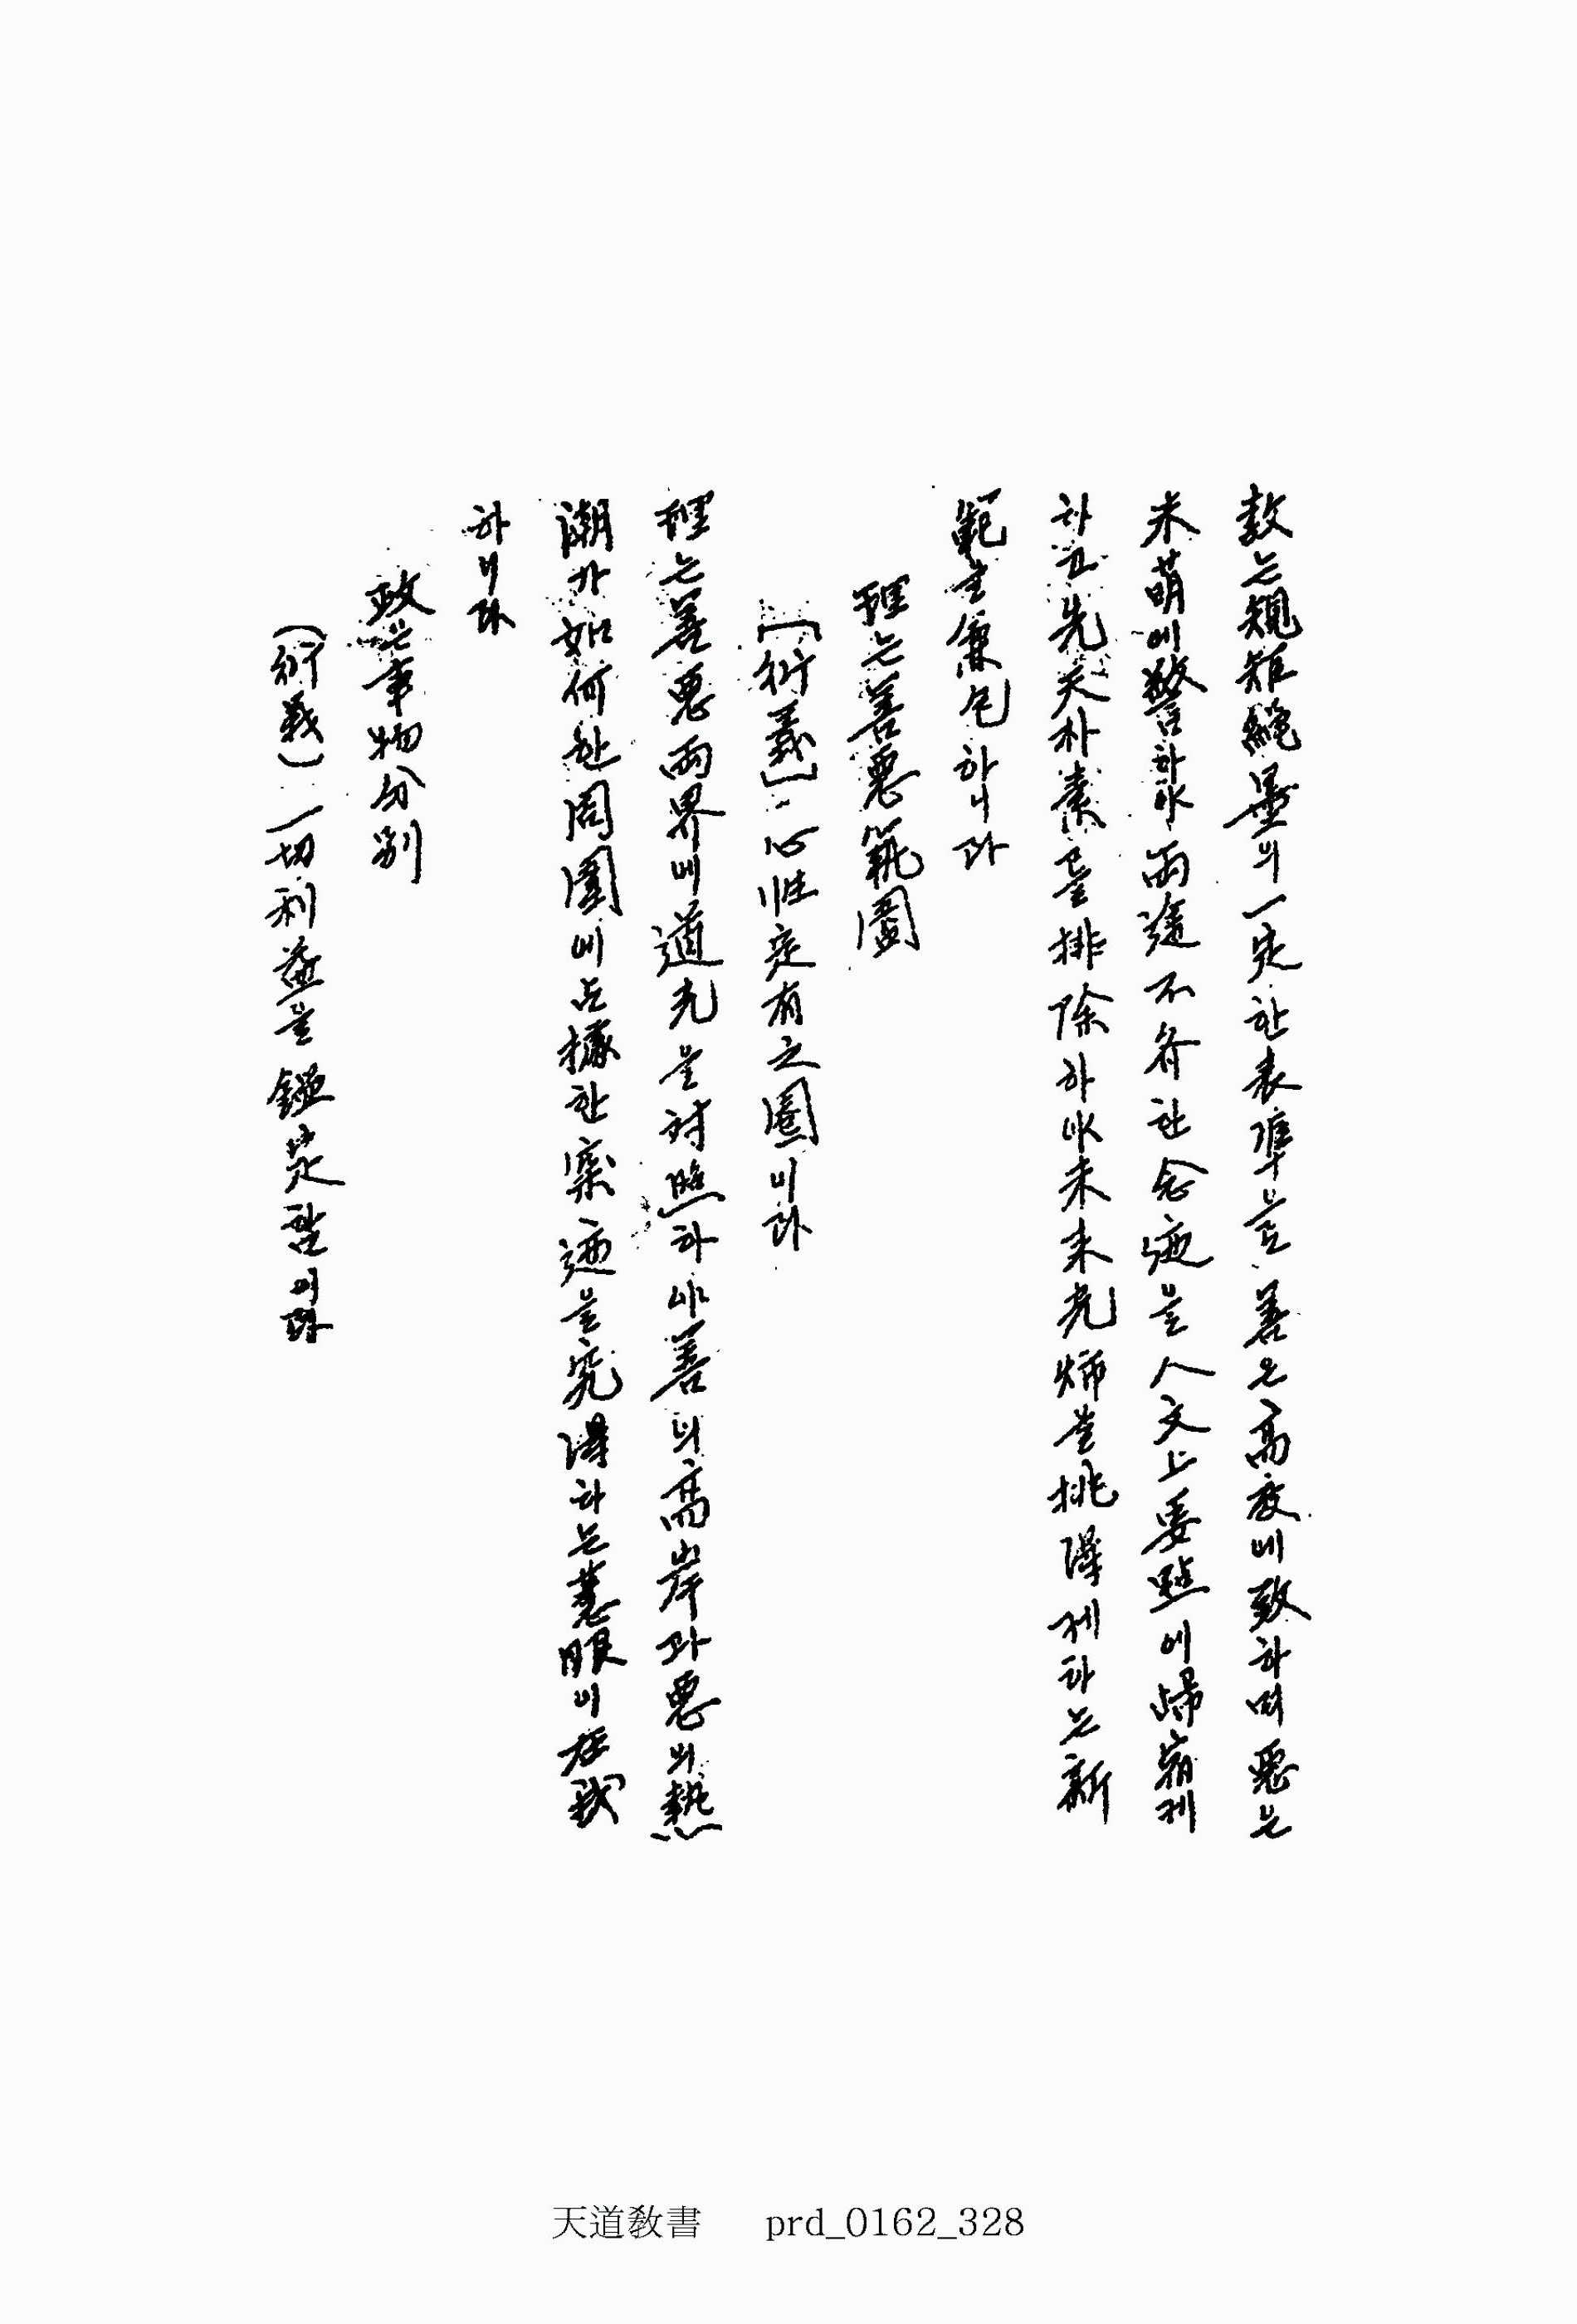 敎는規矩繩墨의一定한表準으로善은高度에致하며惡은
未萌에警하야兩途不齊한念速을人文上要點에歸宿케
하고先天朴素를排除하야未來光炳을挑得케하는新
範을兼包하니라
理는善惡範圍
(衍義)心性定有之圈이라
理는善惡兩界에道光을對照하야善의高岸과惡의熱
潮가如何한周圍에占據한案迹을究得하는慧眼이在哉
하니라
政은事物分別
(衍義)一切利益을鑑定함이라
天道敎書 prd_0162_328